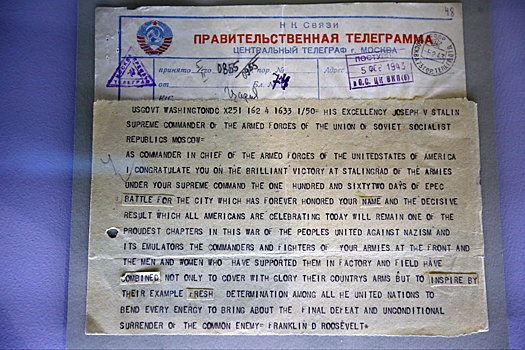 48
Н К Связи
ПРАВИТЕЛЬСТВЕННАЯ ТЕЛЕГРАММА
ЦЕНТРАЛЬНЫЙ ТЕЛЕГРАФ г. МОСКВА
принято
Адрес:
от
Бл. №
5 1943
USGOVT WASHINGTONDC X251 162 4 1633 1/50= HIS EXCELLENCY JOSEPH V STALIN
SUPREME COMMANDER OF THE ARMED FORCES OF THE UNION OF SOVIET SOCIALIST
REPUBLICS MOSCOW=
AS COMMANDER IN CHIEF OF THE ARMED FORCES OF THE UNITEDSTATES OF AMERICA
I CONGRATULATE YOU ON THE BRILLIANT VICTORY AT STALINGRAD OF THE ARMIES
UNDER YOUR SUPREME COMMAND THE ONE HUNDRED AND SIXTYTWO DAYS OF EPEC
BATTLE FOR THE CITY WHICH HAS FOREVER HONORED YOUR NAME AND THE DECISIVE
RESULT WHICH ALL AMERICANS ARE CELEBRATING TODAY WILL REMAIN ONE OF THE
PROUDEST CHAPTERS IN THIS WAR OF THE PEOPLES UNITED AGAINST NAZISM AND
ITS EMULATORS THE COMMANDERS AND FIGHTERS OF YOUR ARMIES AT THE FRONT AND
THE MEN AND WOMEN WHO HAVE SUPPORTED THEM IN FACTORY AND FIELD HAVE
COMBINED NOT ONLY TO COVER WITH GLORY THEIR COUNTRYS ARMS BUT TO INSPIRE BY
THEIR EXAMPLE FRESH DETERMINATION AMONG ALL HE UNITED NATIONS TO
BEND EVERY ENERGY TO BRING ABOUT THE FINAL DEFEAT AND UNCONDITIONAL
SURRENDER OF THE COMMON ENEMY= FRANKLIN D ROOSEVELT*